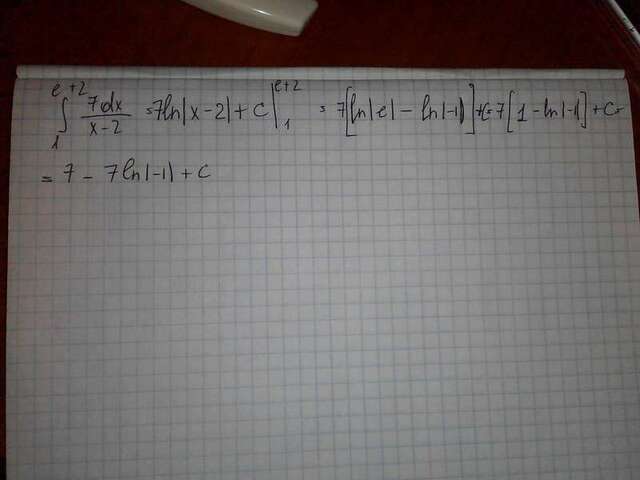 ∫₁^(e+2) 7dx/(x-2) = 7ln|x-2| + C |₁^(e+2) = 7[ln|e| - ln|-1|] + C = 7[1 - ln|-1|] + C =
= 7 - 7ln|-1| + C